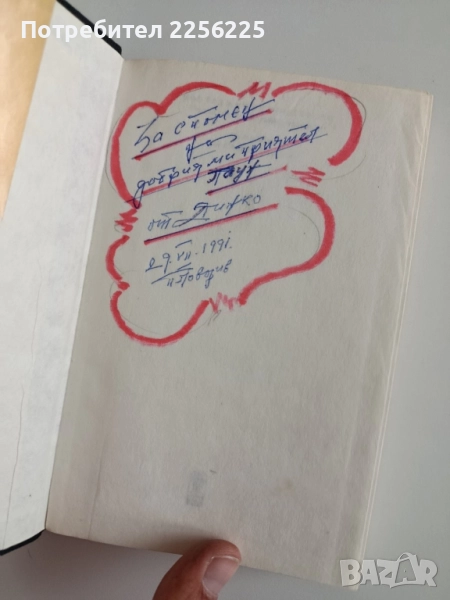 Потребител 2256225
За спомен
на
добрия ми приятел
от Дижко
29.VII.1991.
Пловдив
BAZAR